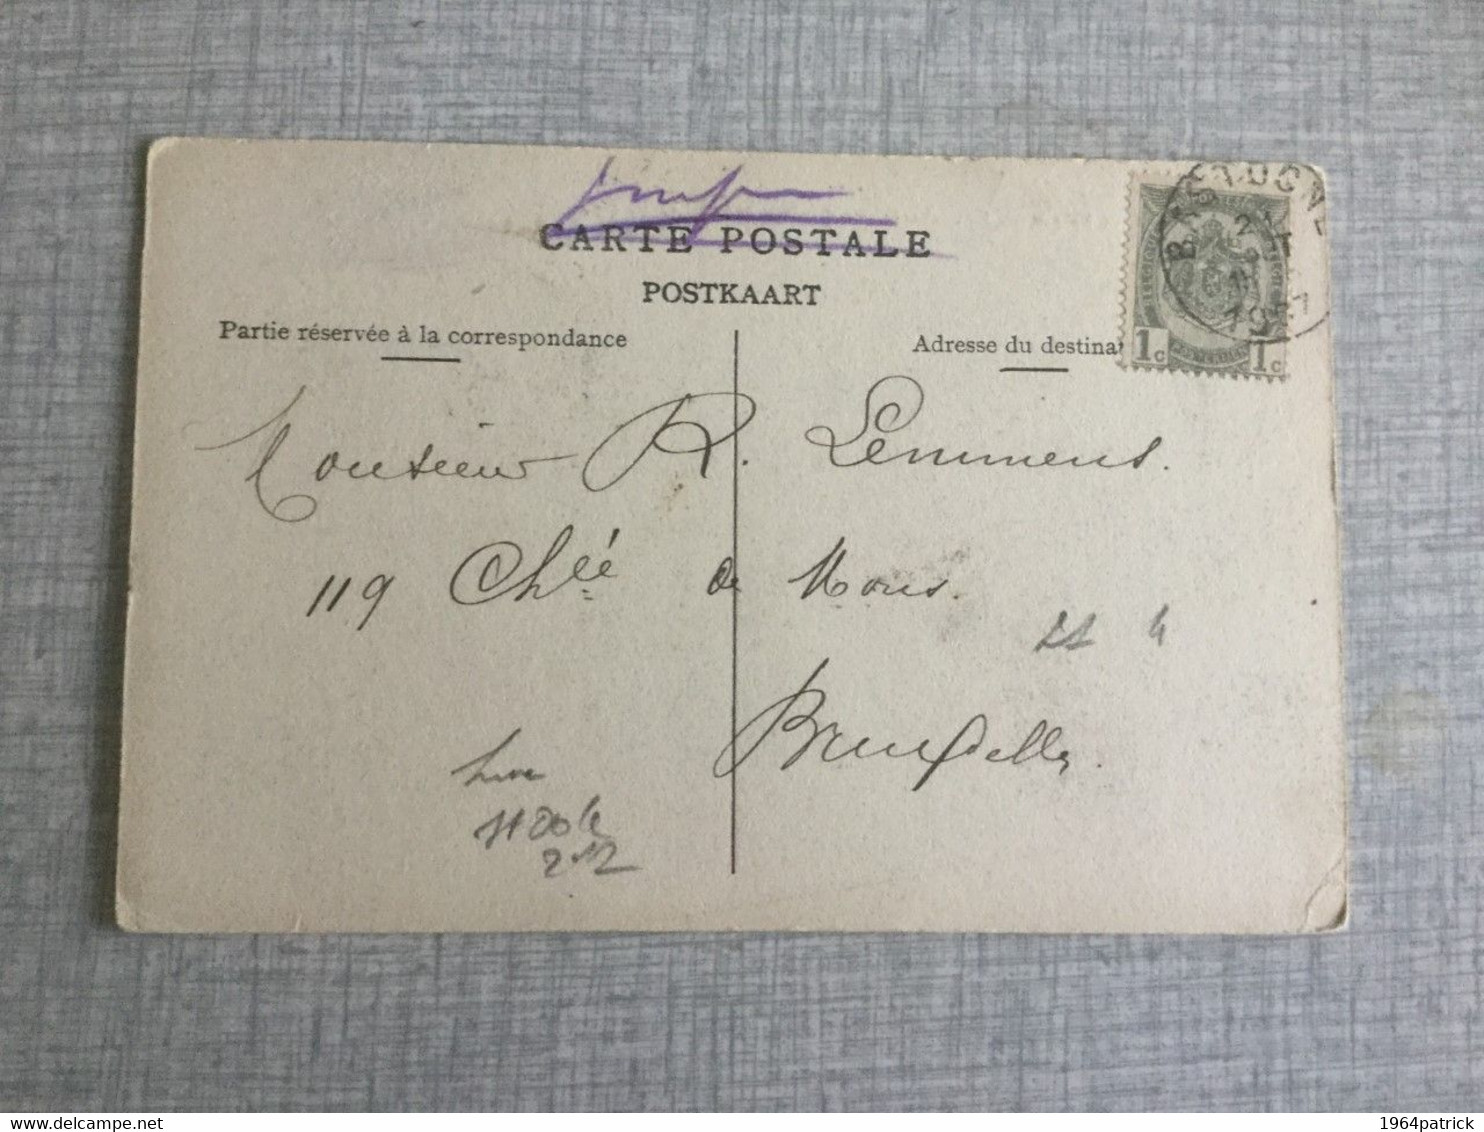 CARTE POSTALE
POSTKAART
Partie réservée à la correspondance
Adresse du destina
BASTOGNE
1c 1c
Monsieur R. Lemmens.
119 Chée de Mons.
Bruxelles.
1964patrick